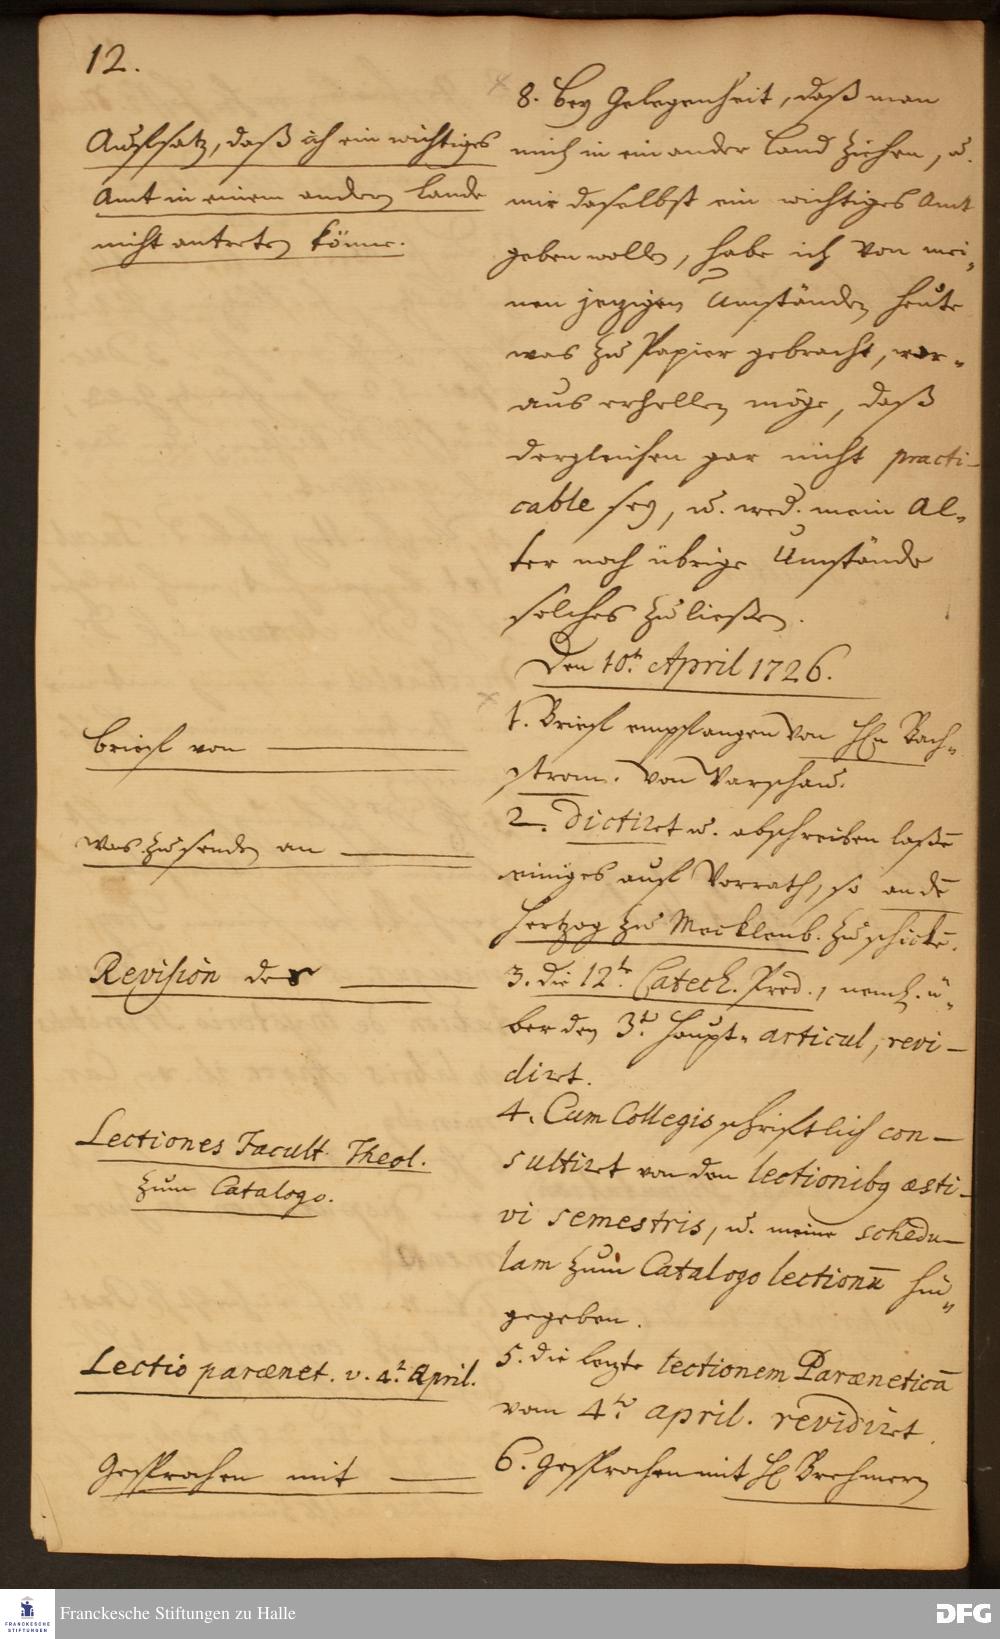 12.
Auffsatz, daß ich ein wichtiges
Amt in einem andern Lande
nicht antreten könne.
8. Bey Gelegenheit, daß man
mich in ein ander Land ziehen, u.
mir daselbst ein wichtiges Amt
geben wollen, habe ich von mei„
nen jezigen Umständen heute
was zu Papier gebracht, wor„
aus erhellen möge, daß
dergleichen gar nicht practi-
cable sey, u. wed. mein Al„
ter noch übrige Umstände
solches zuließen.
Den 10t. April 1726.
Brieff von
1. Brieff empfangen von HEn Bach„
strom. von Warschau.
was zu senden an
2. dictirt u. abschreiben laßē
einiges auff Vorrath, so an dē
Hertzog zu Mecklenb. zu schickē.
Revision der
3. die 12te. Catech. Pred., neml. ü„
ber den 3t. Haupt„ articul, revi-
dirt.
Lectiones Facult. Theol.
zum Catalogo.
4. Cum Collegis schrifftlich con-
sultirt von den lectionibg æsti-
vi semestris, u. meine schedu-
lam zum Catalogo lectionū hin„
gegeben.
Lectio parænet. v. 4t. April.
5. die lezte lectionem Paræneticā
vom 4t. april. revidirt.
Gesprochen mit
6. Gesprochen mit HE Brehmern
Franckesche Stiftungen zu Halle
FRANCKESCHE
STIFTUNGEN
DFG